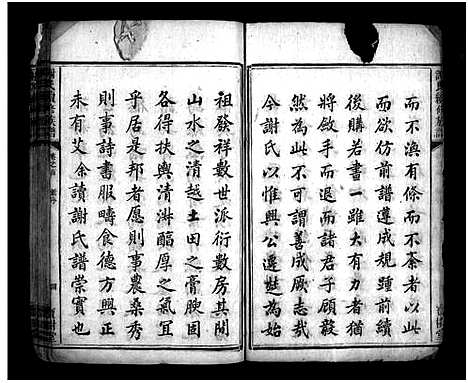 謝氏續修族譜
而不渙有條而不紊者以此
而欲仿前譜遵成規踵前續
後購若書一雖大有力者猶
將斂手而退而諸君子顧毅
然為此不可謂善成厥志哉
今謝氏以惟興公遷楚為始
祖發祥數世派衍數房其間
山水之清越土田之膏腴固
各得扶輿清淋醞厚之氣宜
乎居是邦者愿則事農桑秀
則事詩書服疇食德方興
未有艾余讀謝氏譜崇實也